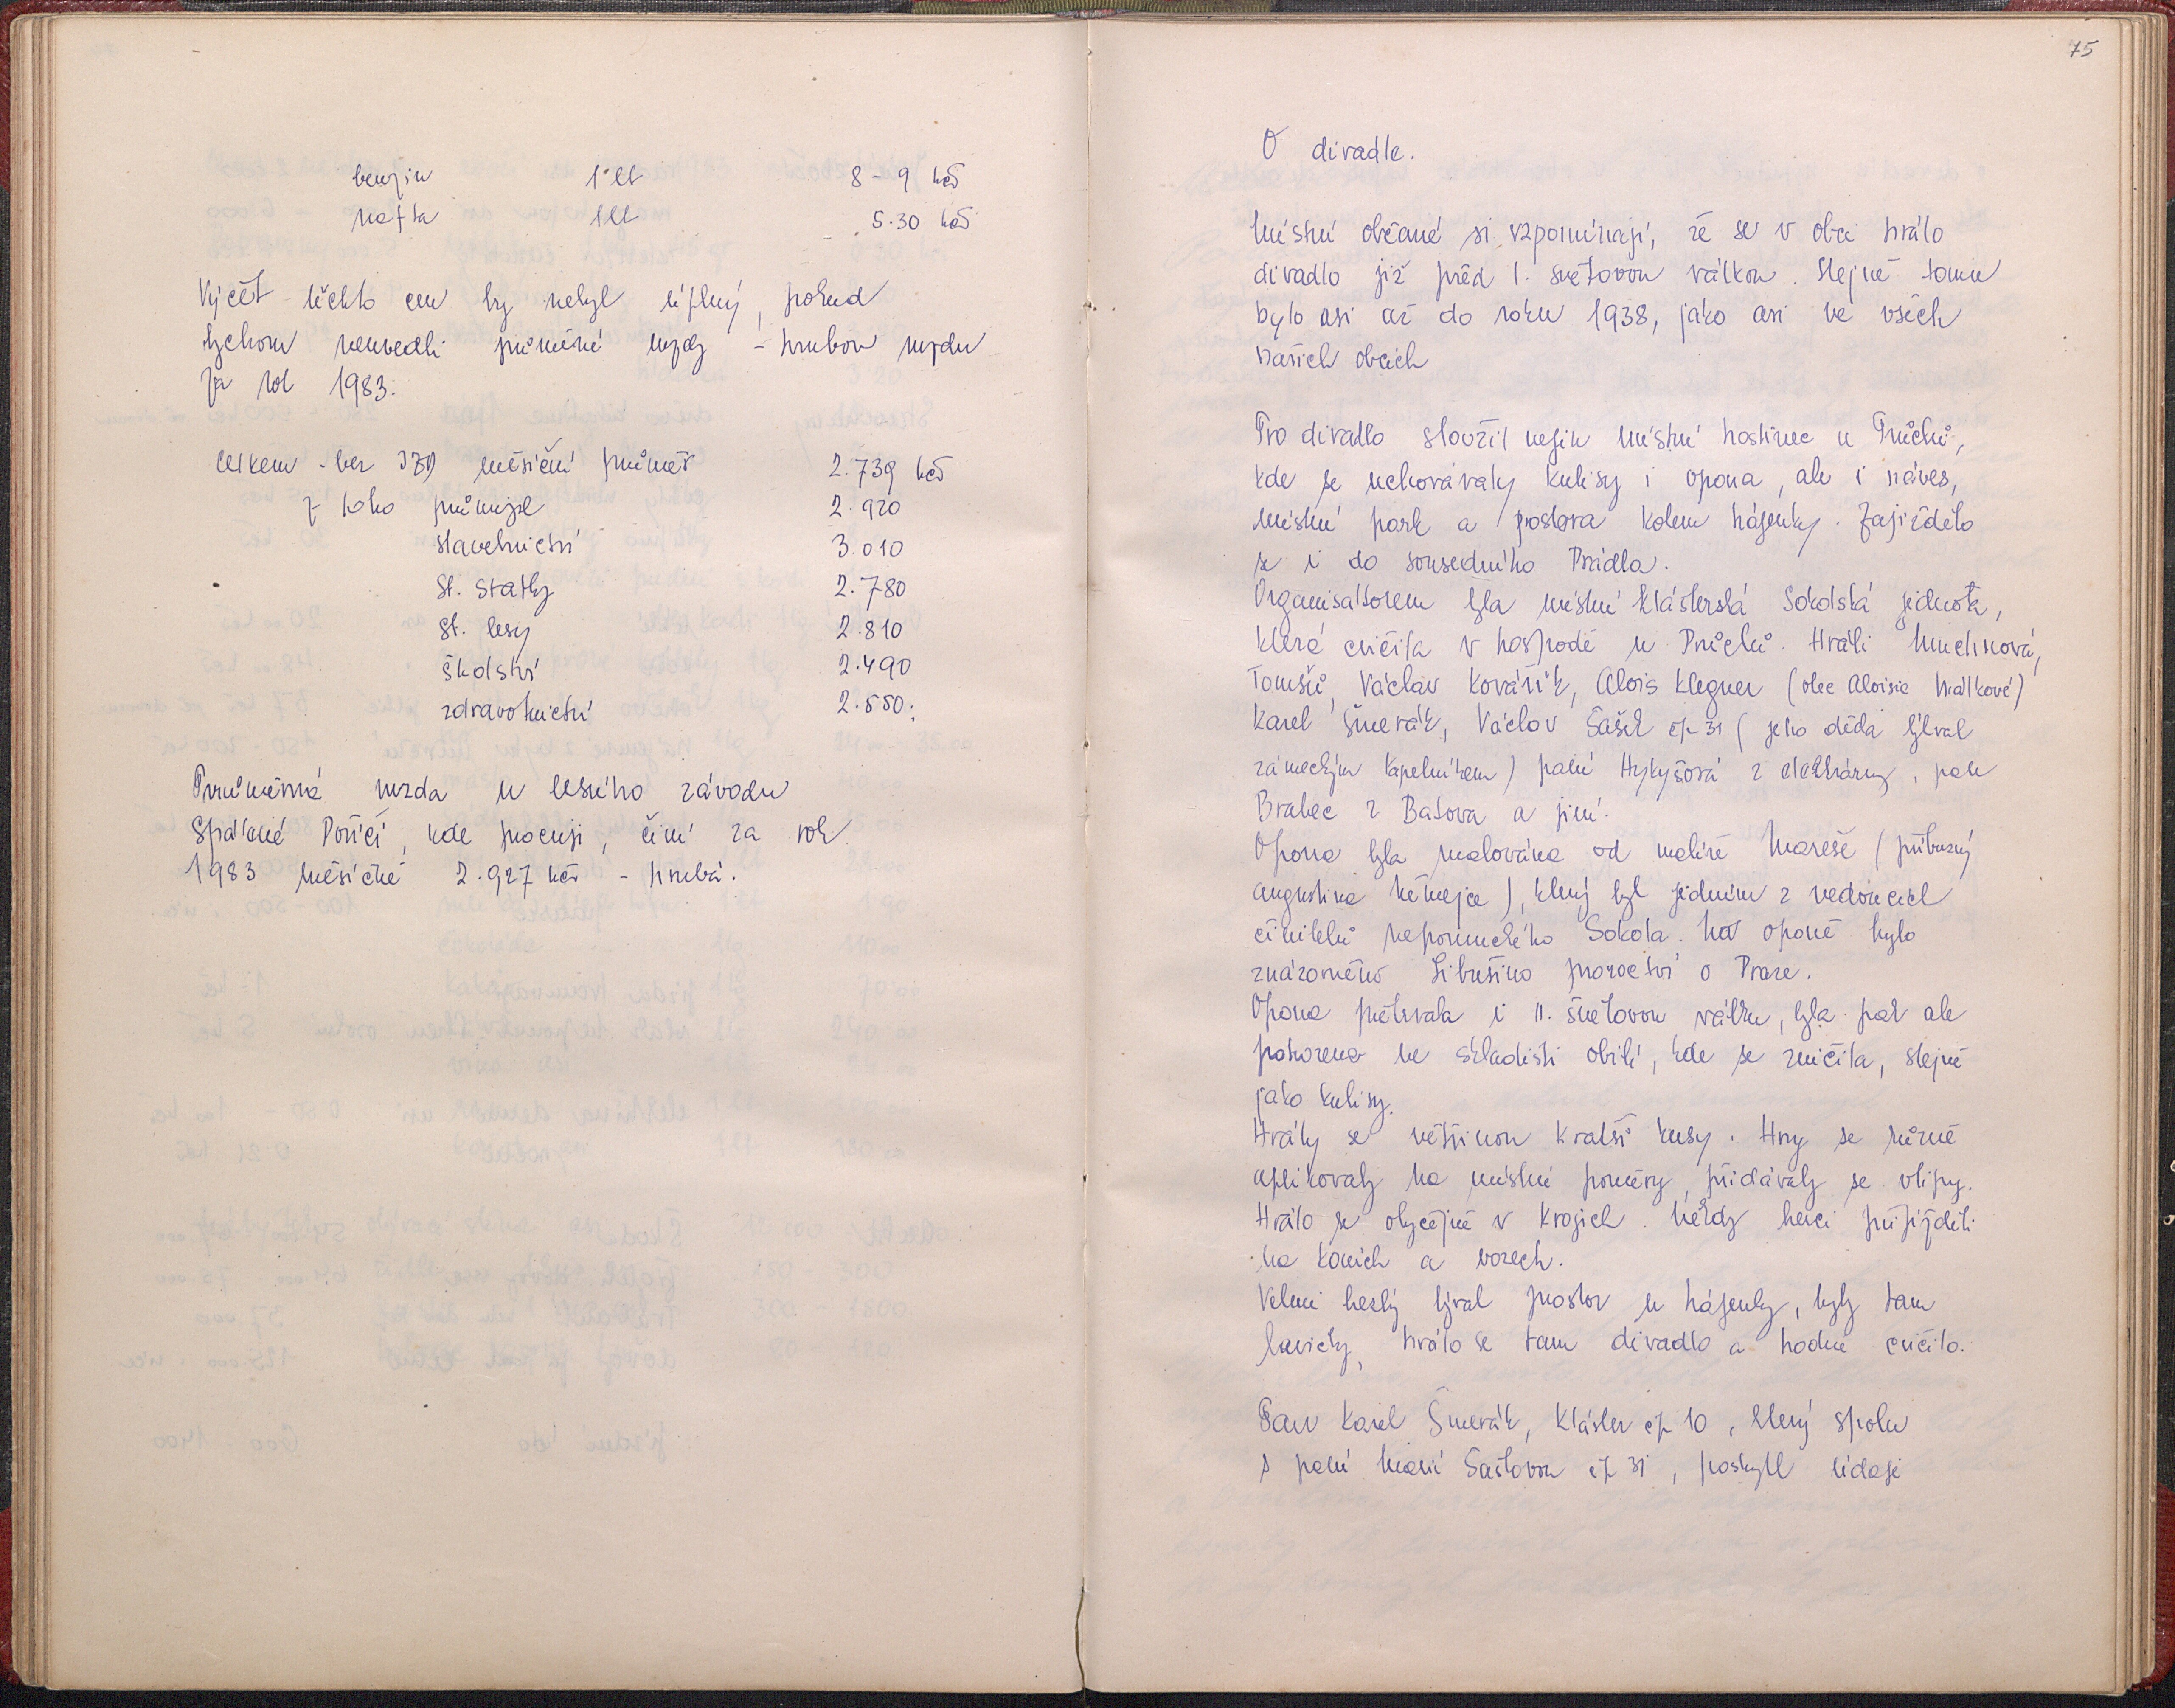 benzin 1 lt 8 - 9 kčs
nafta 1 lt 5.30 kčs
Výčet těchto cen by nebyl úplný, pokud
bychom neuvedli průměrné mzdy - hrubou mzdu
za rok 1983.
celkem - bez JZD měsíční průměr 2.739 kčs
z toho průmysl 2.920
stavebnictví 3.010
St. statky 2.780
St. lesy 2.810
školství 2.490
zdravotnictví 2.550.
Průměrná mzda u lesního závodu
Spálené Poříčí, kde pracuji, činí za rok
1983 měsíčně 2.927 kčs - hrubá.
75
O divadle.
Místní občané si vzpomínají, že se v obci hrálo
divadlo již před I. světovou válkou. Stejně tomu
bylo asi až do roku 1938, jako asi ve všech
našich obcích
Pro divadlo sloužil nejen místní hostinec u Průchů,
kde se uchovávaly kulisy i opona, ale i náves,
místní park a prostora kolem hájenky. Zajíždělo
se i do sousedního Prádla.
Organisátorem byla místní klášterská Sokolská jednota,
která cvičila v hospodě u Průchů. Hráli
Tomšů, Václav Kovářík, Alois Klegner (otec Aloisie Králkové)
Karel Šmerák, Václav Šašek čp 31 (jeho děda býval
zámeckým kapelníkem) paní Hykyšová z cihlárny, pan
Brabec z Baťova a jiní.
Opona byla malována od malíře Mareše (příbuzný
Augustina Němejce), který byl jedním z vedoucích
činitelů nepomuckého Sokola. Na oponě bylo
znázorněno Libušino proroctví o Praze.
Opona přetrvala i II. světovou válku, byla pak ale
pohozena ve skladišti obilí, kde se zničila, stejně
jako kulisy.
Hrály se většinou kratší kusy. Hry se různě
aplikovaly na místní poměry, přidávaly se vtipy.
Hrálo se obyčejně v krojích. Někdy herci přijížděli
na koních a vozech.
Velmi hezký býval prostor u hájenky, byly tam
lavičky, hrálo se tam divadlo a hodně cvičilo.
Pan Karel Šmerák, Klášter čp 10, který spolu
s paní Marií Šaškovou čp 31, poskytl údaje